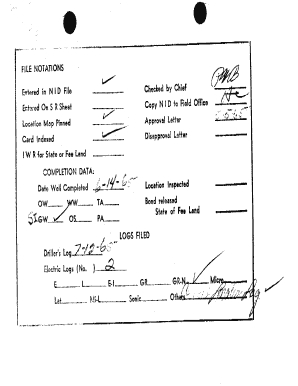 FILE NOTATIONS
Entered in N I D File ✓
Checked by Chief PMB
Entered On S R Sheet
Copy N I D to Field Office
Location Map Pinned ✓
Approval Letter
Card Indexed ✓
Disapproval Letter
I W R for State or Fee Land
COMPLETION DATA:
Date Well Completed 6-14-65
Location Inspected
OW WW TA
Bond released
SI GW ✓ OS PA
State of Fee Land
LOGS FILED
Driller's Log 7-12-65
Electric Logs (No. ) 2
E I E-I GR GR-N ✓ Micro
Lat Mi-L Sonic Others